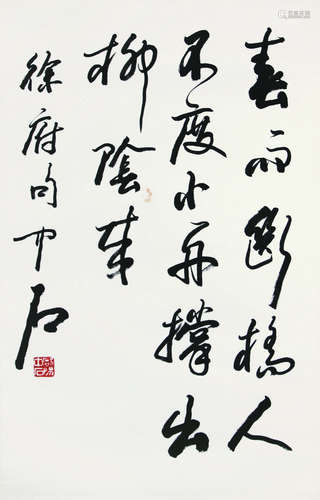 春雨断橋人
不度小舟撐出
柳陰来
徐府句中石